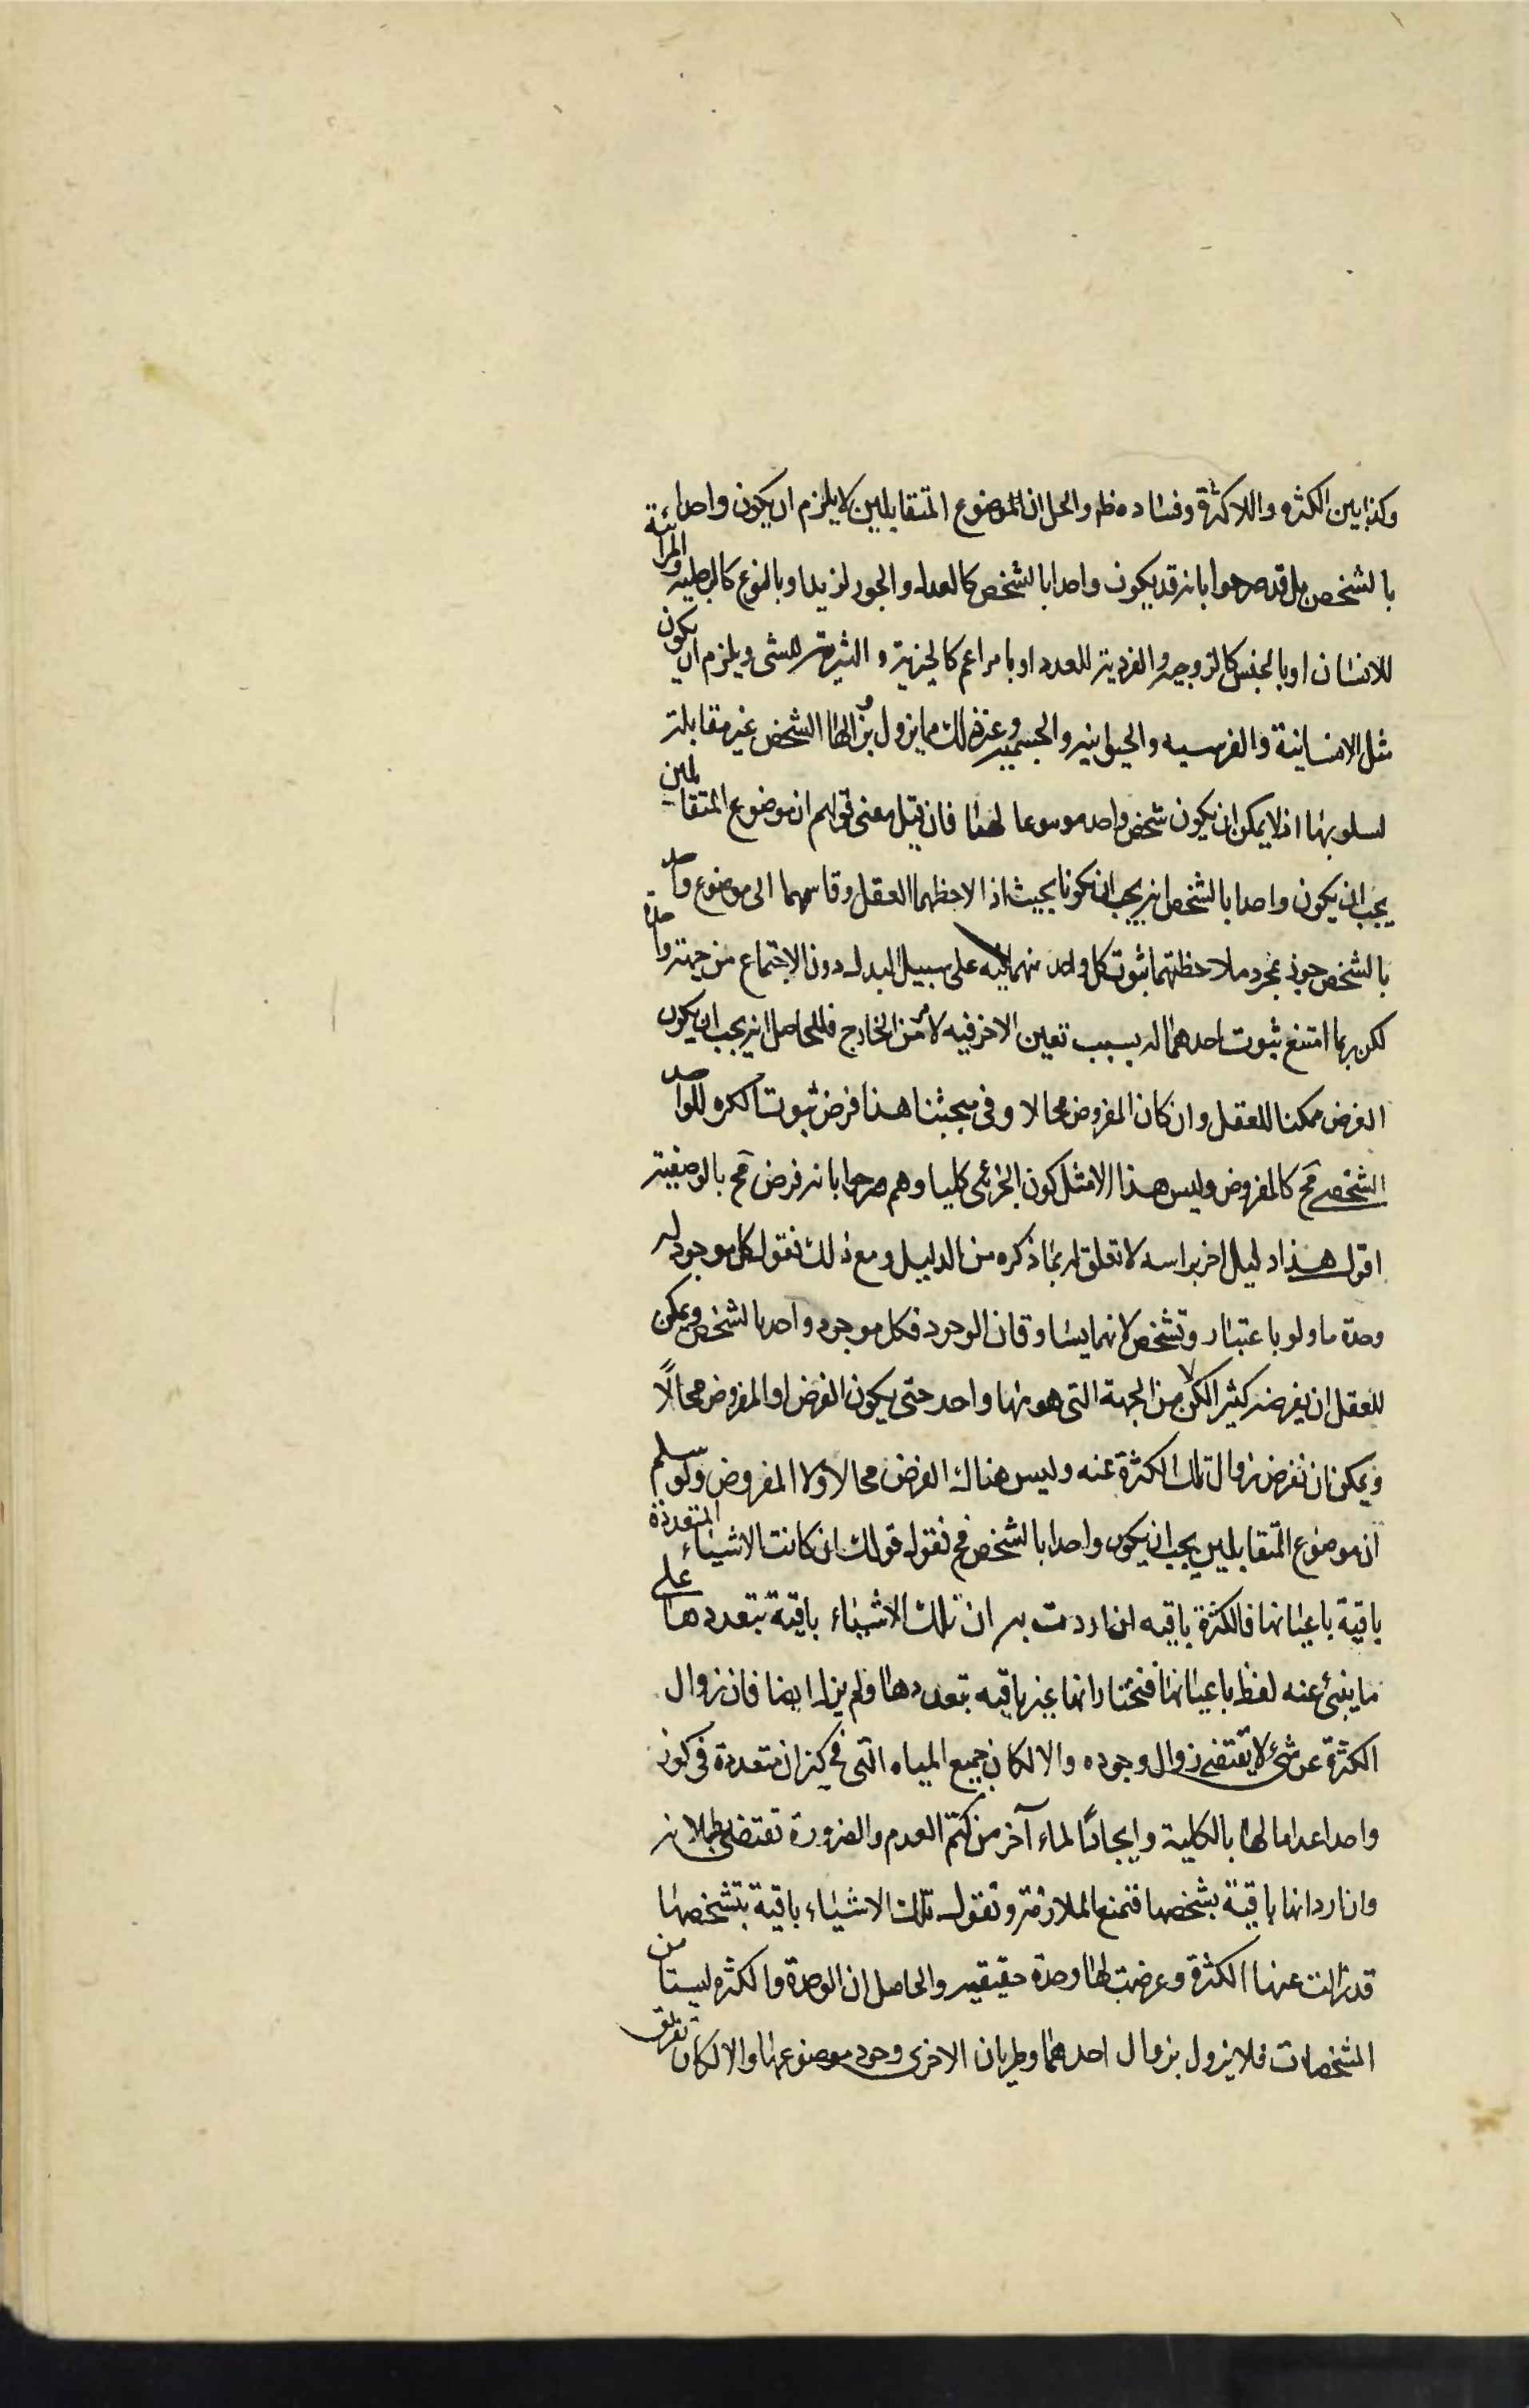 وكذا بين الكثره واللاكثرة وفساده ظ والحل ان الموضوع المتقابلين لا يلزم ان يكون واحدا
بالشخص بل قد صرحوا بانه قد يكون واحدا بالشخص كالعدل والجور لزيد او بالنوع كالرجليه والمرائية
للانسان او بالجنس كالزوجيه والفردية للعدد او بامر اعم كالخيرية و الشرية للشى ويلزم ان يكون
مثل الانسانية والفرسيه والحيوانيه والجسميه وغير ذلك مما يزول بزواله الشخص غير مقابلة
لسلوبها اذ لا يمكن ان يكون شخص واحد موضوعا لهما فان قيل معنى قولهم ان موضوع المتقابلين
يجب ان يكون واحدا بالشخص انه يجب ان يكونا بحيث اذا لاحظهما العقل وقاسهما الى موضوع واحد
بالشخص جوز بمجرد ملاحظتهما ثبوت كل واحد منهما فيه على سبيل البدل دون الاجتماع من جهة واحدة
لكن ربما امتنع ثبوت احدهما له بسبب تعين الاخر فيه لامر من الخارج فالحاصل انه يجب ان يكون
الفرض ممكنا للعقل وان كان المفروض محالا وفى مبحثنا هذا فرض ثبوت الكثره للواحد
الشخصى مح كالمفروض وليس هذا الا مثل كون الجزئى كليا وهم صرحوا بانه فرض مح بالوصفية
اقول هذا دليل اخر براسه لا تعلق له بما ذكره من الدليل ومع ذلك نقول كل موجود له
وحدة ما ولو باعتبار وتشخص لانهما يساوقان الوجود فكل موجود واحد بالشخص ويمكن
للعقل ان يفرضه كثيرا لكن لا من الجهة التى هو بها واحد حتى يكون الفرض او المفروض محالًا
ويمكن ان نفرض زوال تلك الكثرة عنه وليس هناك الفرض محالا ولا المفروض ولو سلم
ان موضوع المتقابلين يجب ان يكون واحدا بالشخص فح نقول قولك ان كانت الاشياء المتعددة
باقية باعيانها فالكثرة باقيه ان اردت به ان تلك الاشياء باقية بتعددها على
ما ينبئ عنه لفظ باعيانها فنختار انها غير باقيه بتعددها ولم يزل ايضا فان زوال
الكثرة عن شئ لا يقتضى زوال وجوده والا لكان جميع المياه التى فى كيزان متعددة فى كوز
واحد اعداما لها بالكلية وايجادًا لماء آخر من كتم العدم والضرورة تقتضى بطلانه
وان اراد انها باقية بشخصها فنمنع الملازمة ونقول تلك الاشياء باقية بتشخصها
قد زالت عنها الكثرة وعرضت لها وحدة حقيقيه والحاصل ان الوحدة والكثره ليستا من
المشخصات فلا يزول بزوال احدهما وطريان الاخرى وجود موضوعهما والا لكان تفريق